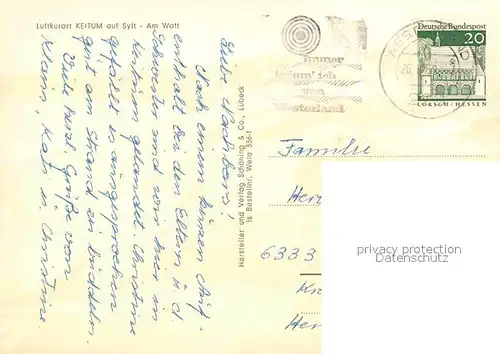 Luftkurort KEITUM auf Sylt - Am Watt
Liebe Nachbarn!
Nach einem kurzen Auf-
enthalt bei den Eltern u. d.
sind wir hier in
Keitum gelandet. Christine
gefällt es ausgesprochen
gut am Strand zu buddeln.
Viele herzl. Grüße von
Klein, Kat u. Christine.
Hersteller und Verlag Schöning & Co., Lübeck
Is Bestellnr. Wela 336 f
immer
träum' ich
von
Westerland
Deutsche Bundespost
20
LORSCH/HESSEN
Familie
Her
6333
Kr
Her
privacy protection
Datenschutz